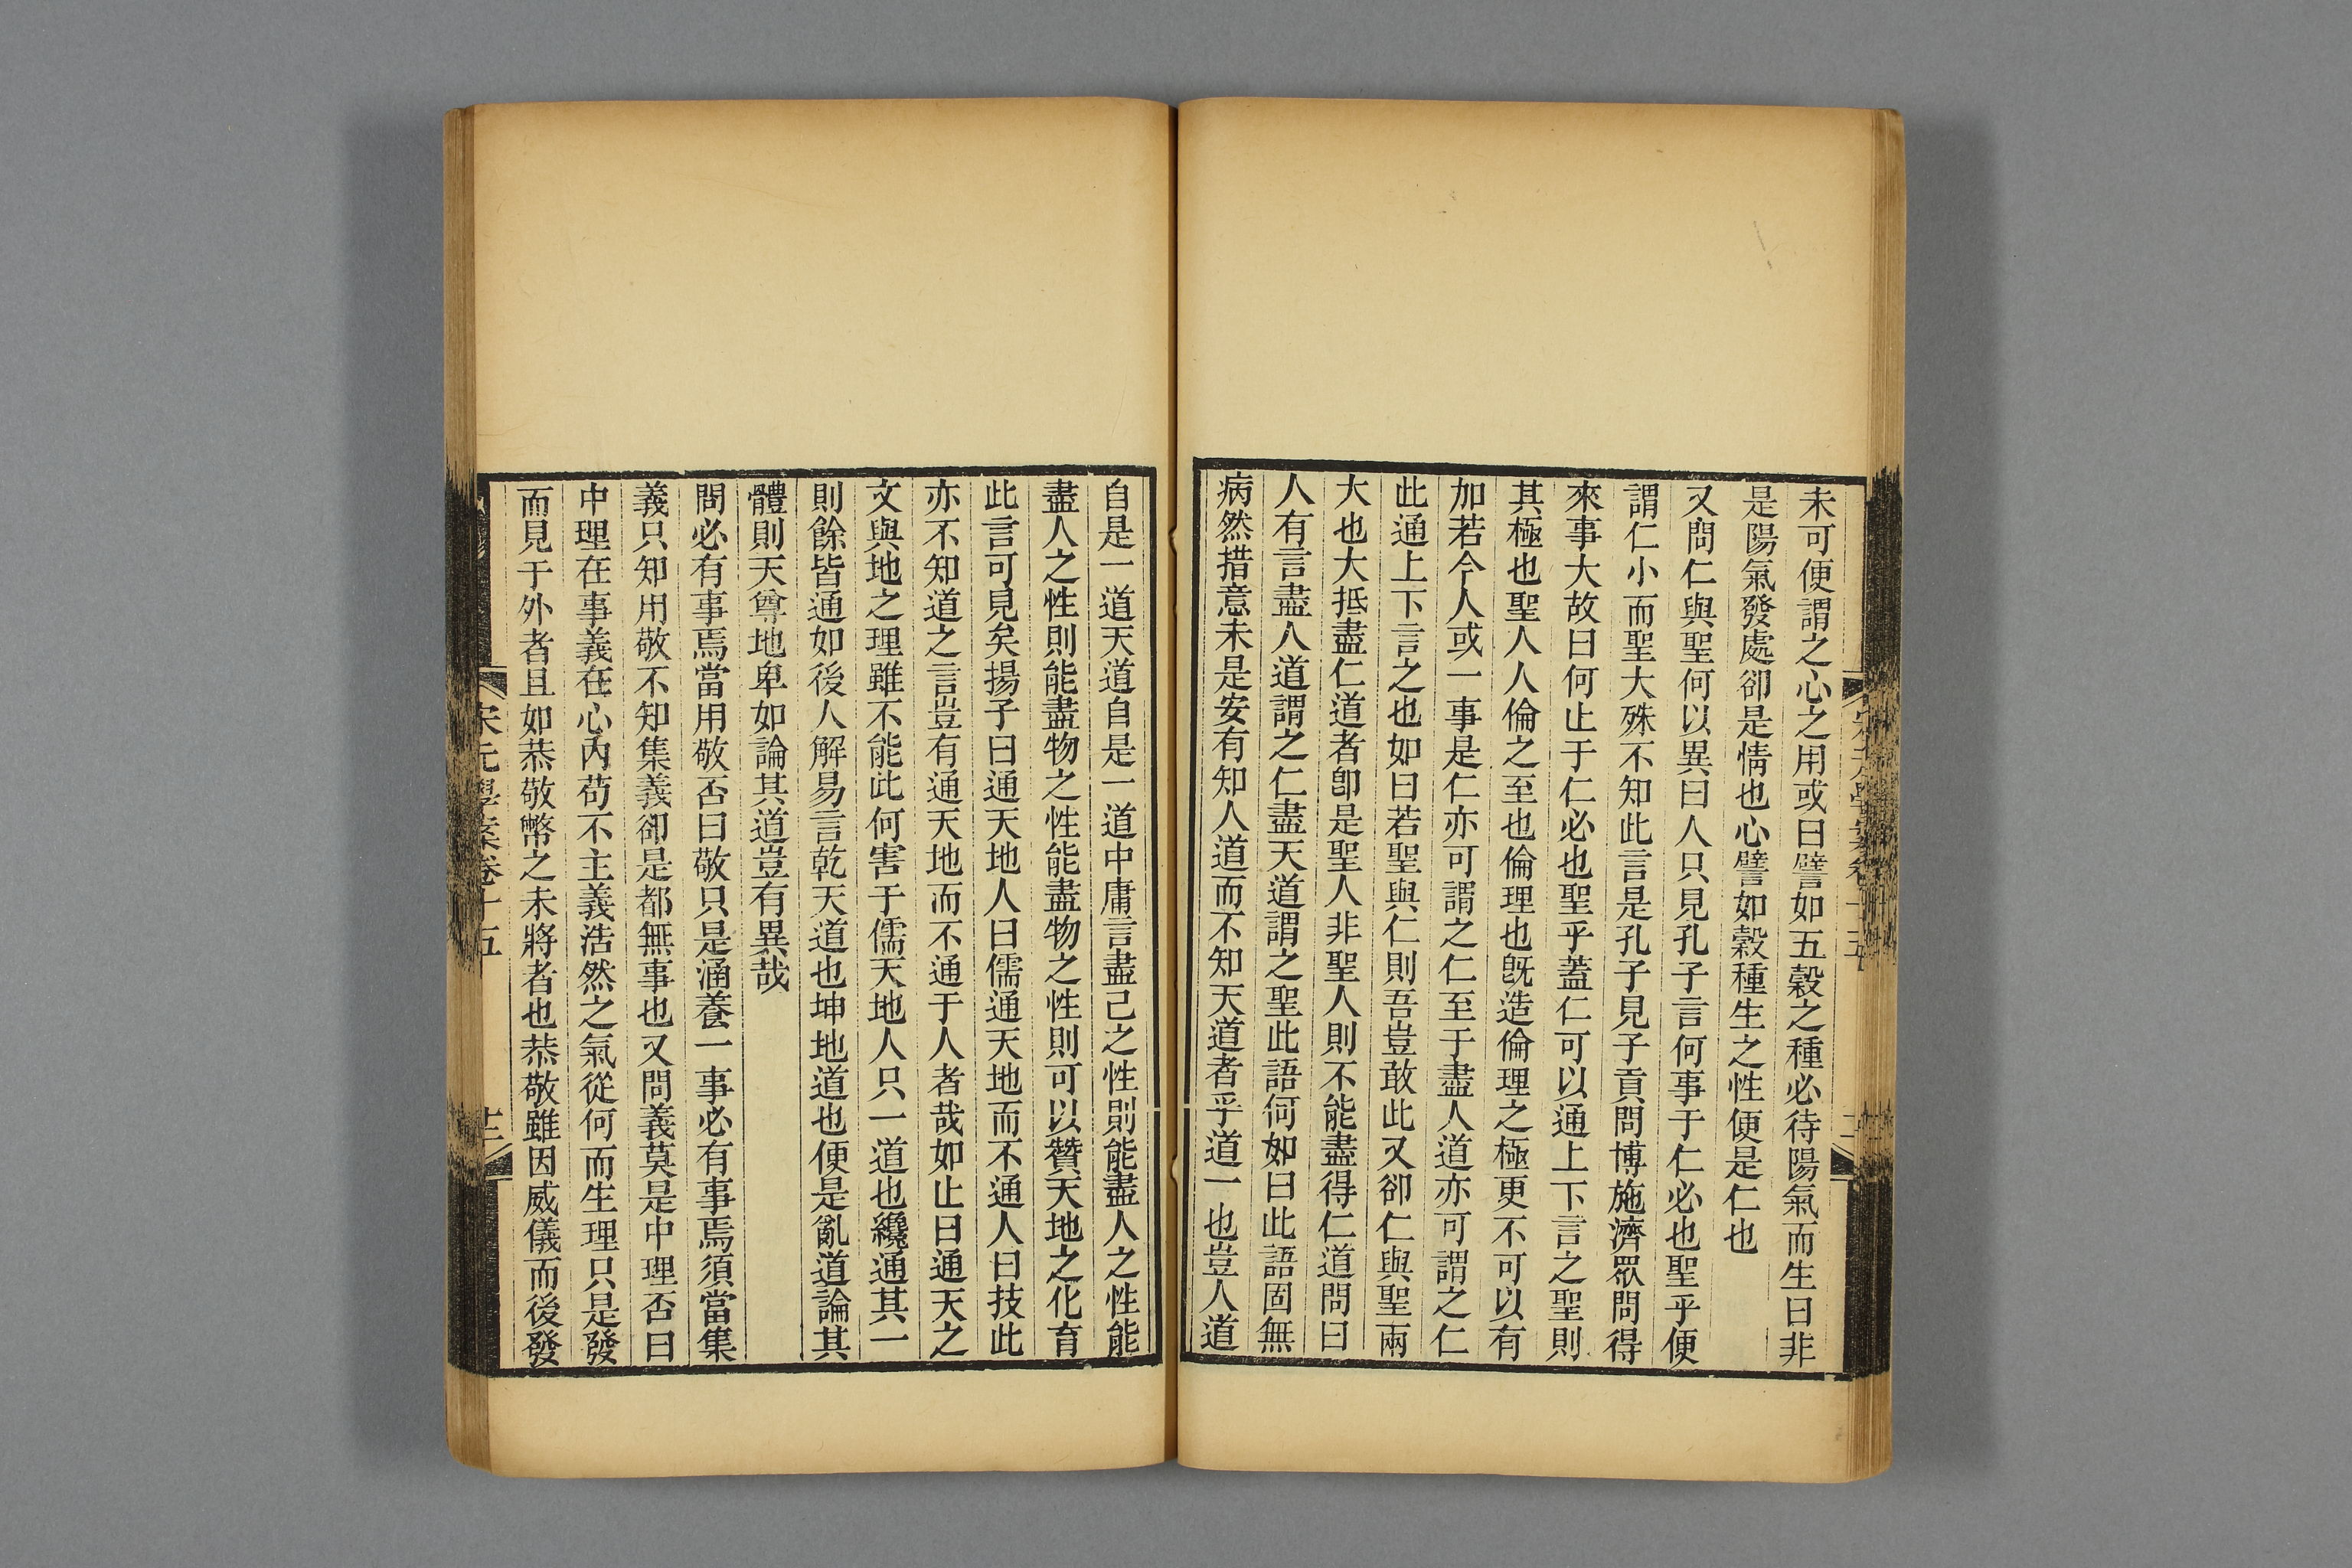 未可便謂之心之用或曰譬如五穀之種必待陽氣而生曰非
是陽氣發處卻是情也心譬如穀種生之性便是仁也
又問仁與聖何以異曰人只見孔子言何事于仁必也聖乎便
謂仁小而聖大殊不知此言是孔子見子貢問博施濟眾問得
來事大故曰何止于仁必也聖乎蓋仁可以通上下言之聖則
其極也聖人人倫之至也倫理也旣造倫理之極更不可以有
加若今人或一事是仁亦可謂之仁至于盡人道亦可謂之仁
此通上下言之也如曰若聖與仁則吾豈敢此又卻仁與聖兩
大也大抵盡仁道者卽是聖人非聖人則不能盡得仁道問曰
人有言盡人道謂之仁盡天道謂之聖此語何如曰此語固無
病然措意未是安有知人道而不知天道者乎道一也豈人道
自是一道天道自是一道中庸言盡己之性則能盡人之性能
盡人之性則能盡物之性能盡物之性則可以贊天地之化育
此言可見矣揚子曰通天地人曰儒通天地而不通人曰技此
亦不知道之言豈有通天地而不通于人者哉如止曰通天之
文與地之理雖不能此何害于儒天地人只一道也纔通其一
則餘皆通如後人解易言乾天道也坤地道也便是亂道論其
體則天尊地卑如論其道豈有異哉
問必有事焉當用敬否曰敬只是涵養一事必有事焉須當集
義只知用敬不知集義卻是都無事也又問義莫是中理否曰
中理在事義在心內苟不主義浩然之氣從何而生理只是發
而見于外者且如恭敬幣之未將者也恭敬雖因威儀而後發
宋元學案卷十五